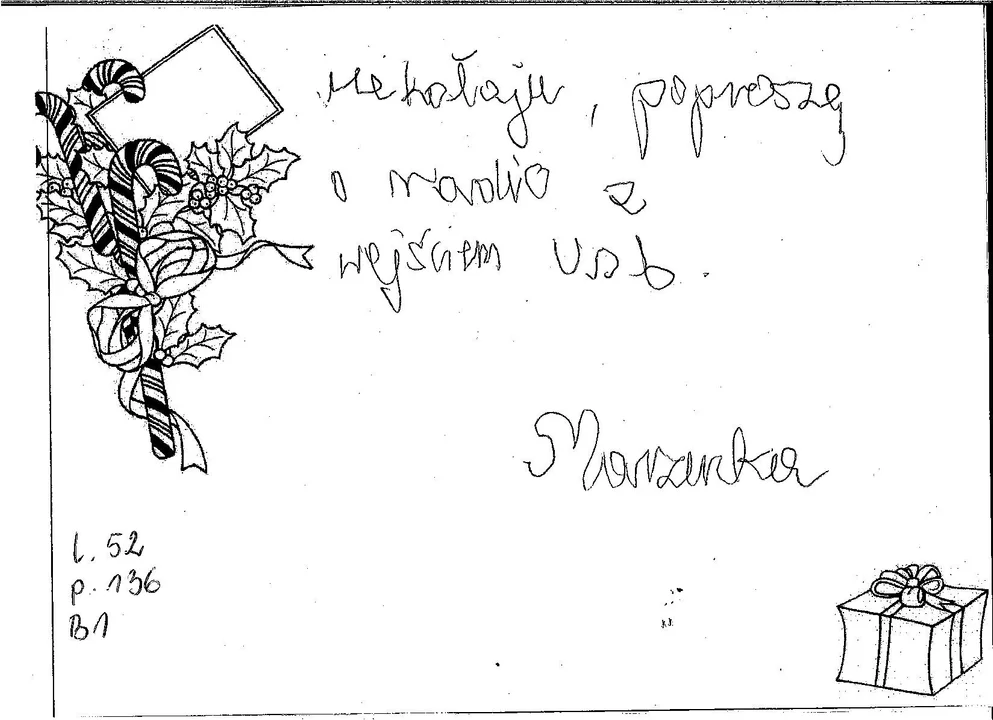 Mikołaju, poproszę
o radio z
wejściem Usb.
Marzenka
l. 52
p. 136
B1